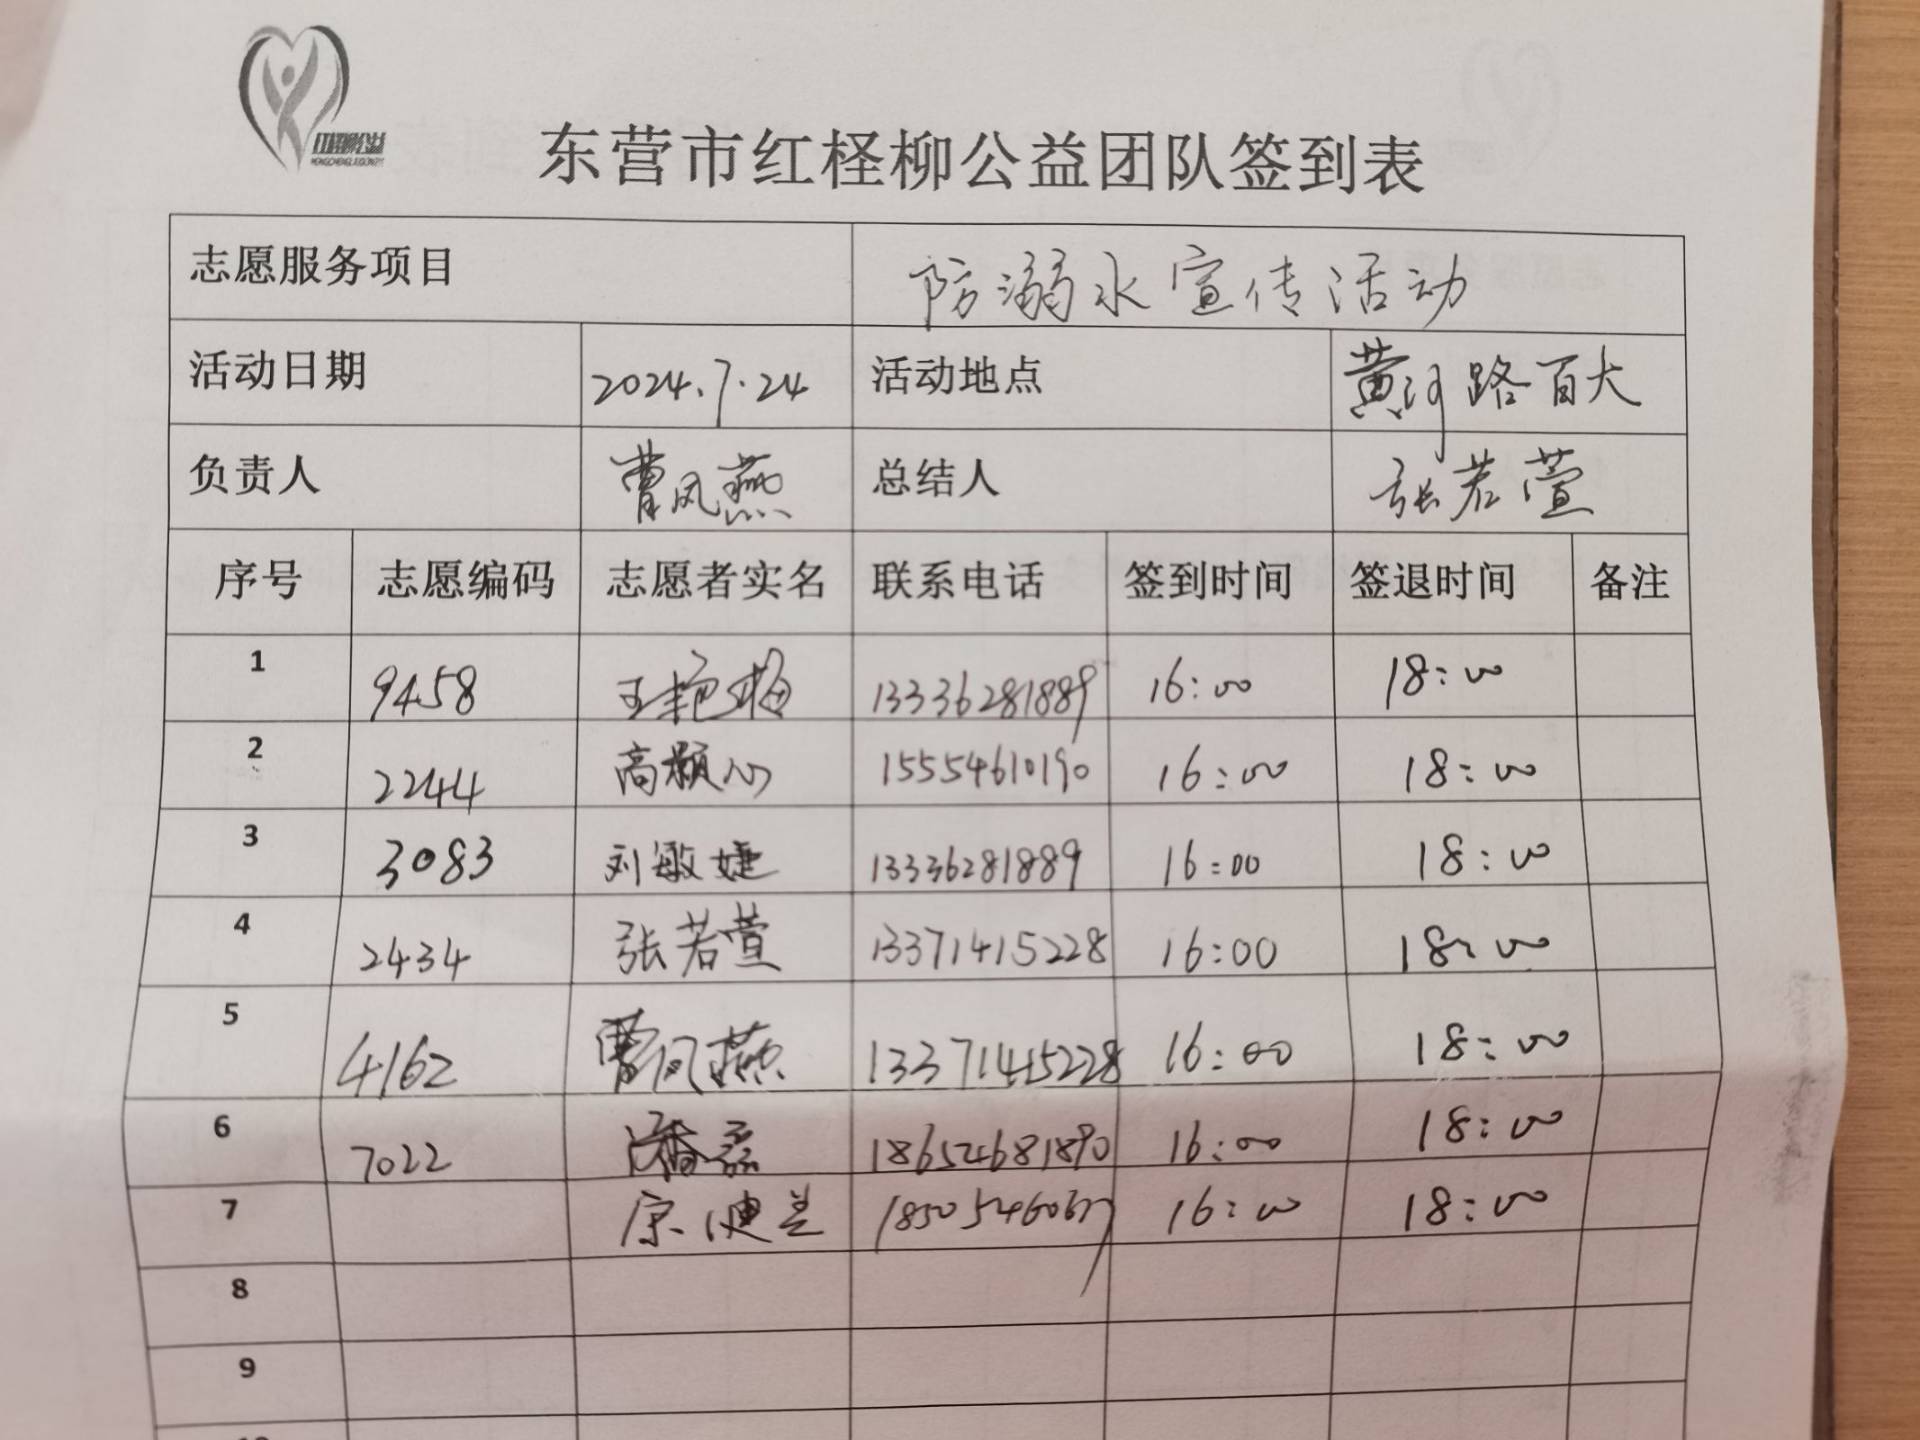 东营市红柽柳公益团队签到表
志愿服务项目 防溺水宣传活动
活动日期 2024.7.24 活动地点 黄河路百大
负责人 曹凤燕 总结人 张若萱
序号 志愿编码 志愿者实名 联系电话 签到时间 签退时间 备注
1 9458 王艳梅 13336281889 16:00 18:00
2 2244 高颢心 15554610190 16:00 18:00
3 3083 刘敏婕 13336281889 16:00 18:00
4 2434 张若萱 13371415228 16:00 18:00
5 4162 曹凤燕 13371415228 16:00 18:00
6 7022 18654681890 16:00 18:00
7 16:00 18:00
8
9